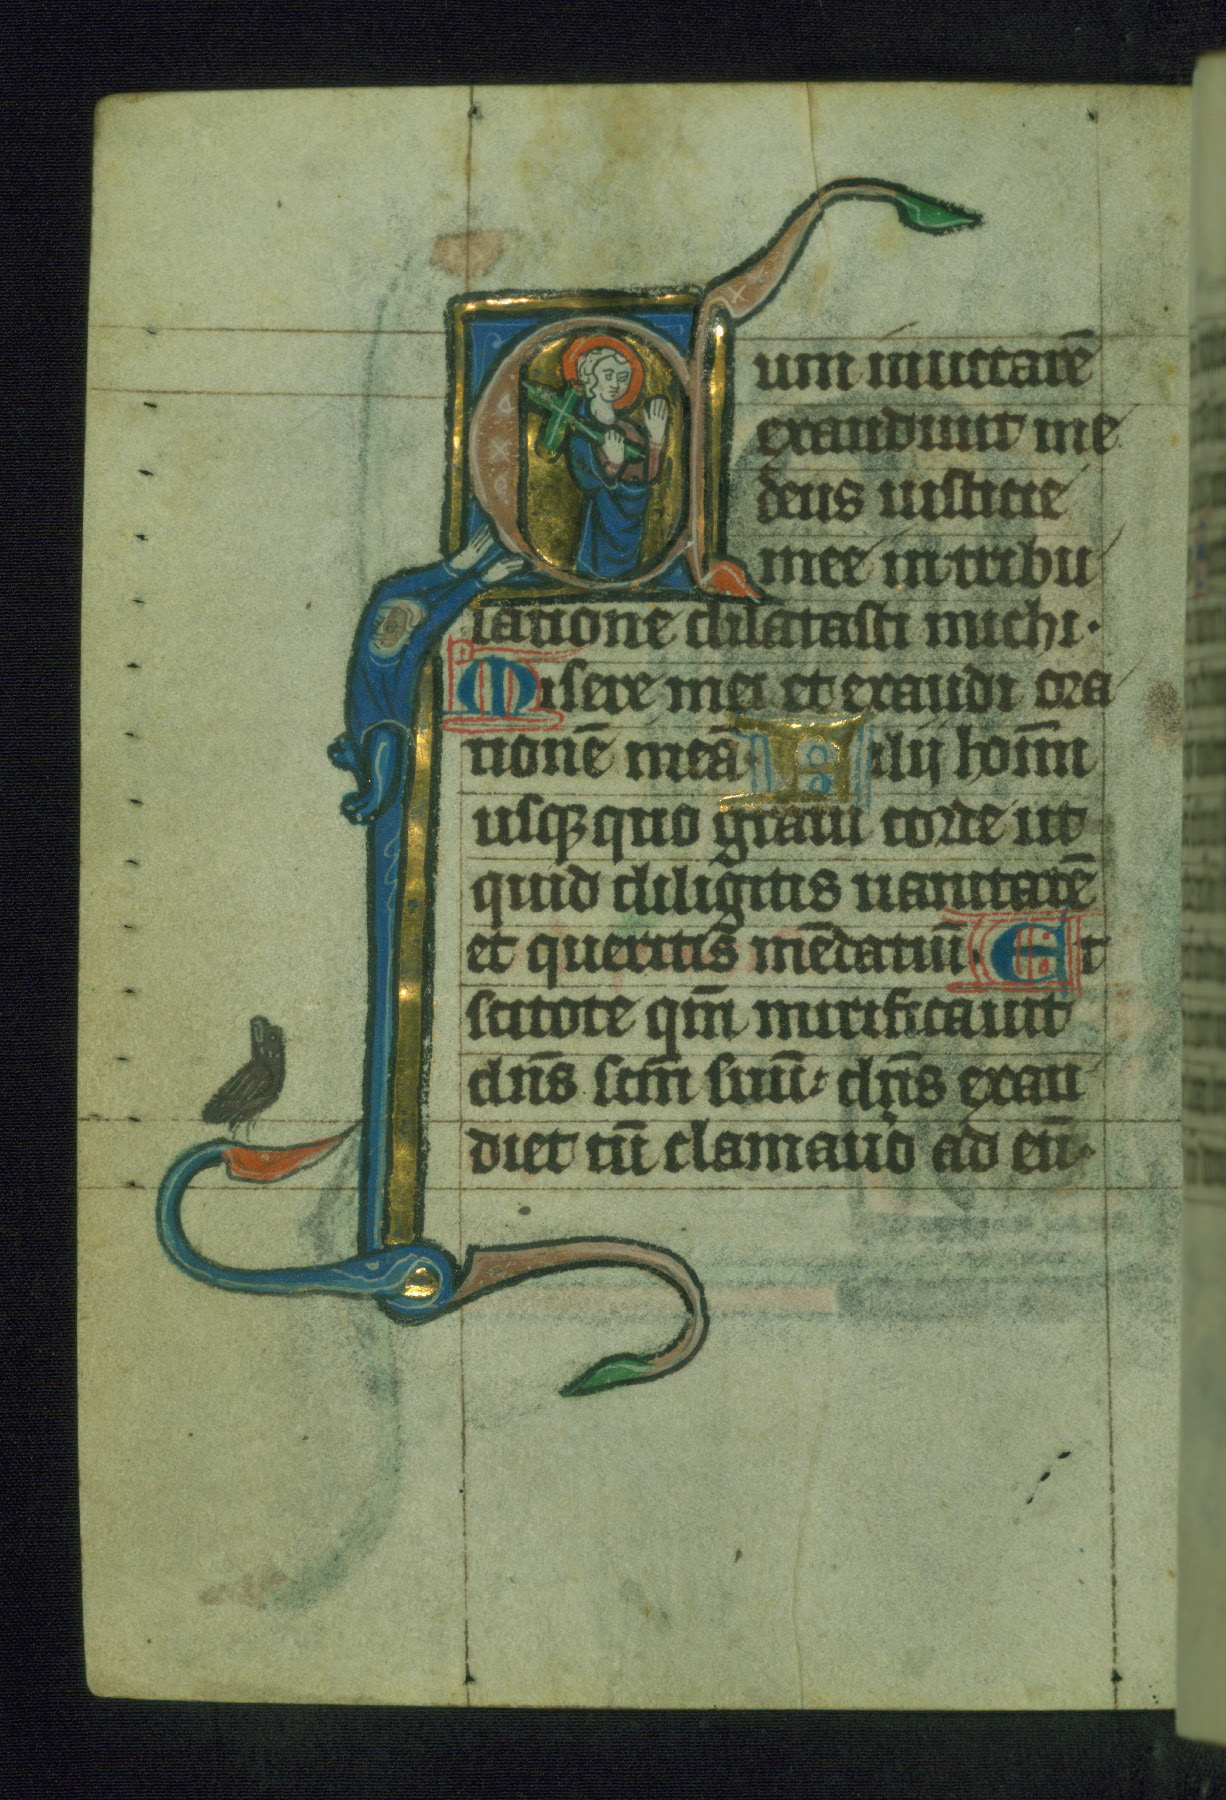 Cum inuocarē
exaudiuit me
deus iusticie
mee in tribu
latione dilatasti michi·
Miserere mei et exaudi ora
tionē meā· Filij homīn
usq̢ quo graui corde ut
quid diligitis uanitatē
et queritis mēdatiū· Et
scitote qm̄ mirificauit
dn̄s scm̄ suū: dn̄s exau
diet cū clamauo ad eū·